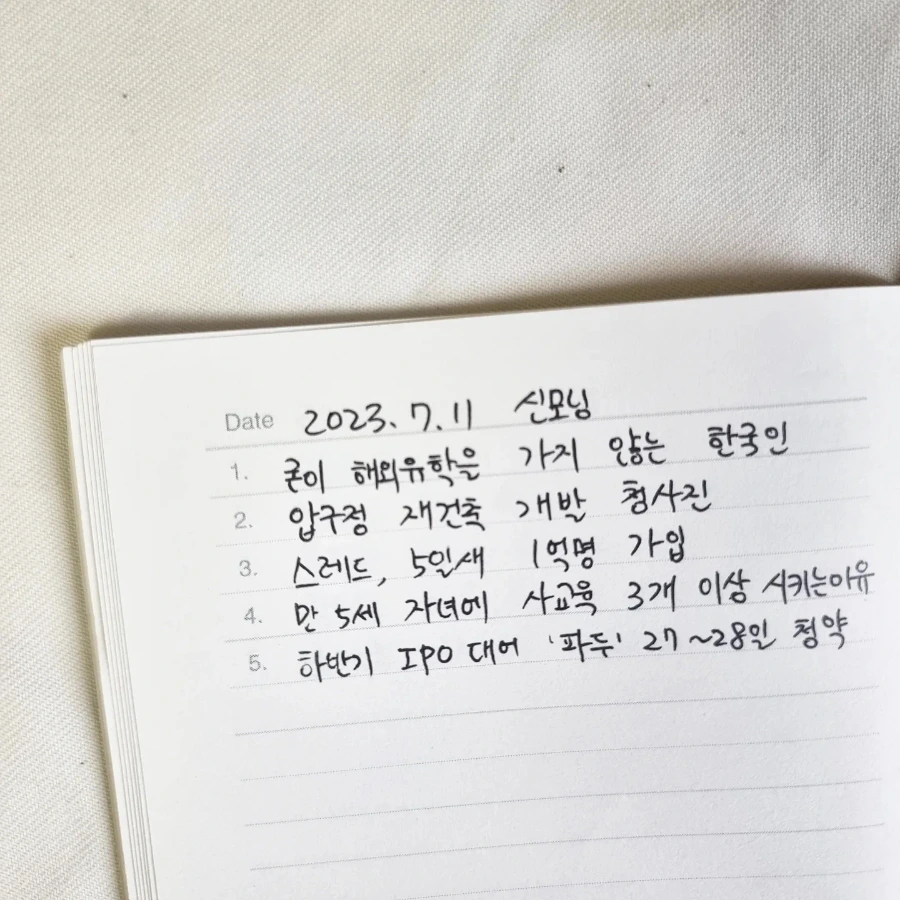 Date 2023.7.11 신모닝
1. 굳이 해외유학을 가지 않는 한국인
2. 압구정 재건축 개발 청사진
3. 스레드, 5일새 1억명 가입
4. 만 5세 자녀에 사교육 3개 이상 시키는이유
5. 하반기 IPO 대어 '파두' 27~28일 청약